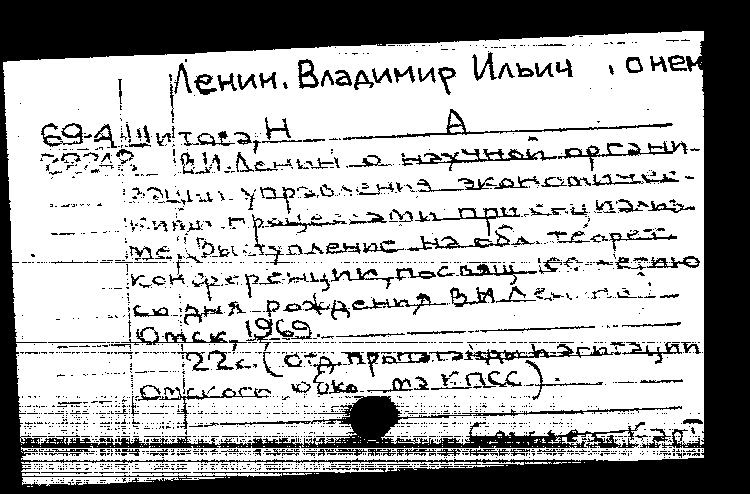 Ленин, Владимир Ильич, о нем
69-4 Шитова, Н А
В.И.Ленин о научной органи-
зации управления экономичес-
кими процессами при социализ-
ме. (Выступление на обл. теорет.
конференции, посвящ. 100-летию
со дня рождения В.И.Ленина).
Омск, 1969.
22с. (отд. пропаганды и агитации
Омского обкома КПСС).